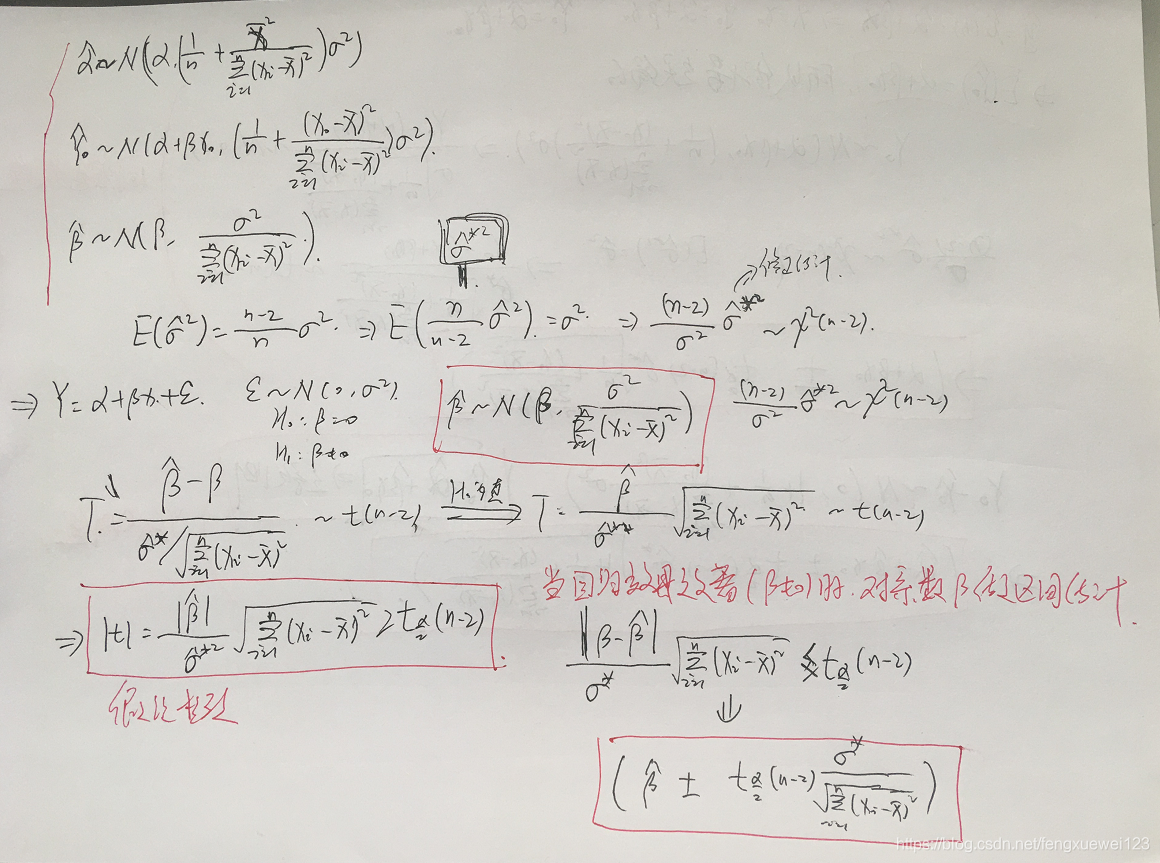 α̂ ~ N(α, (1/n + x̄²/∑ᵢ₌₁ⁿ(xᵢ-x̄)²)σ²)
Ŷ₀ ~ N(α+βx₀, (1/n + (x₀-x̄)²/∑ᵢ₌₁ⁿ(xᵢ-x̄)²)σ²).
β̂ ~ N(β, σ²/∑ᵢ₌₁ⁿ(xᵢ-x̄)²).
σ̂*²
⇒修正估计.
E(σ̂²) = (n-2)/n σ². ⇒ E(n/(n-2) σ̂²) = σ². ⇒ (n-2)/σ² σ̂*² ~ χ²(n-2).
⇒ Y = α+βx+ε. ε ~ N(0, σ²). β̂ ~ N(β, σ²/∑ᵢ₌₁ⁿ(xᵢ-x̄)²) (n-2)/σ² σ̂*² ~ χ²(n-2)
H₀: β=0
H₁: β≠0
T = (β̂-β)/(σ̂*/√∑ᵢ₌₁ⁿ(xᵢ-x̄)²) ~ t(n-2), H₀为真 ⇒ T = β̂/σ̂* √∑ᵢ₌₁ⁿ(xᵢ-x̄)² ~ t(n-2)
⇒ |t| = |β̂|/σ̂*² √∑ᵢ₌₁ⁿ(xᵢ-x̄)² ≥ t_{α/2}(n-2)
当回归效果显著(β≠0)时. 对系数β做区间估计.
|β-β̂|/σ* √∑ᵢ₌₁ⁿ(xᵢ-x̄)² < t_{α/2}(n-2)
⇓
(β̂ ± t_{α/2}(n-2) σ*/√∑ᵢ₌₁ⁿ(xᵢ-x̄)²)
https://blog.csdn.net/fengxuewei123